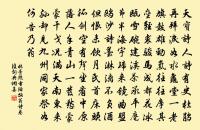 天寶詩人詩有史杜鵑
再拜淚如水龜堂一老
旗鼓雄勁氣往往摩其
壘輕裘駿馬成都花冰
甌雪碗建溪茶承平麾
節半海宇歸來鏡曲盟
鷗沙詩墨淋漓不負酒
但恨未飲月氏首床頭
孤劍空有聲坐看中原
落人手青山一髮愁濛
濛干戈況滿天南東來
孫卻見九州同家祭如
何告乃翁
林景熙書陸放翁詩卷後